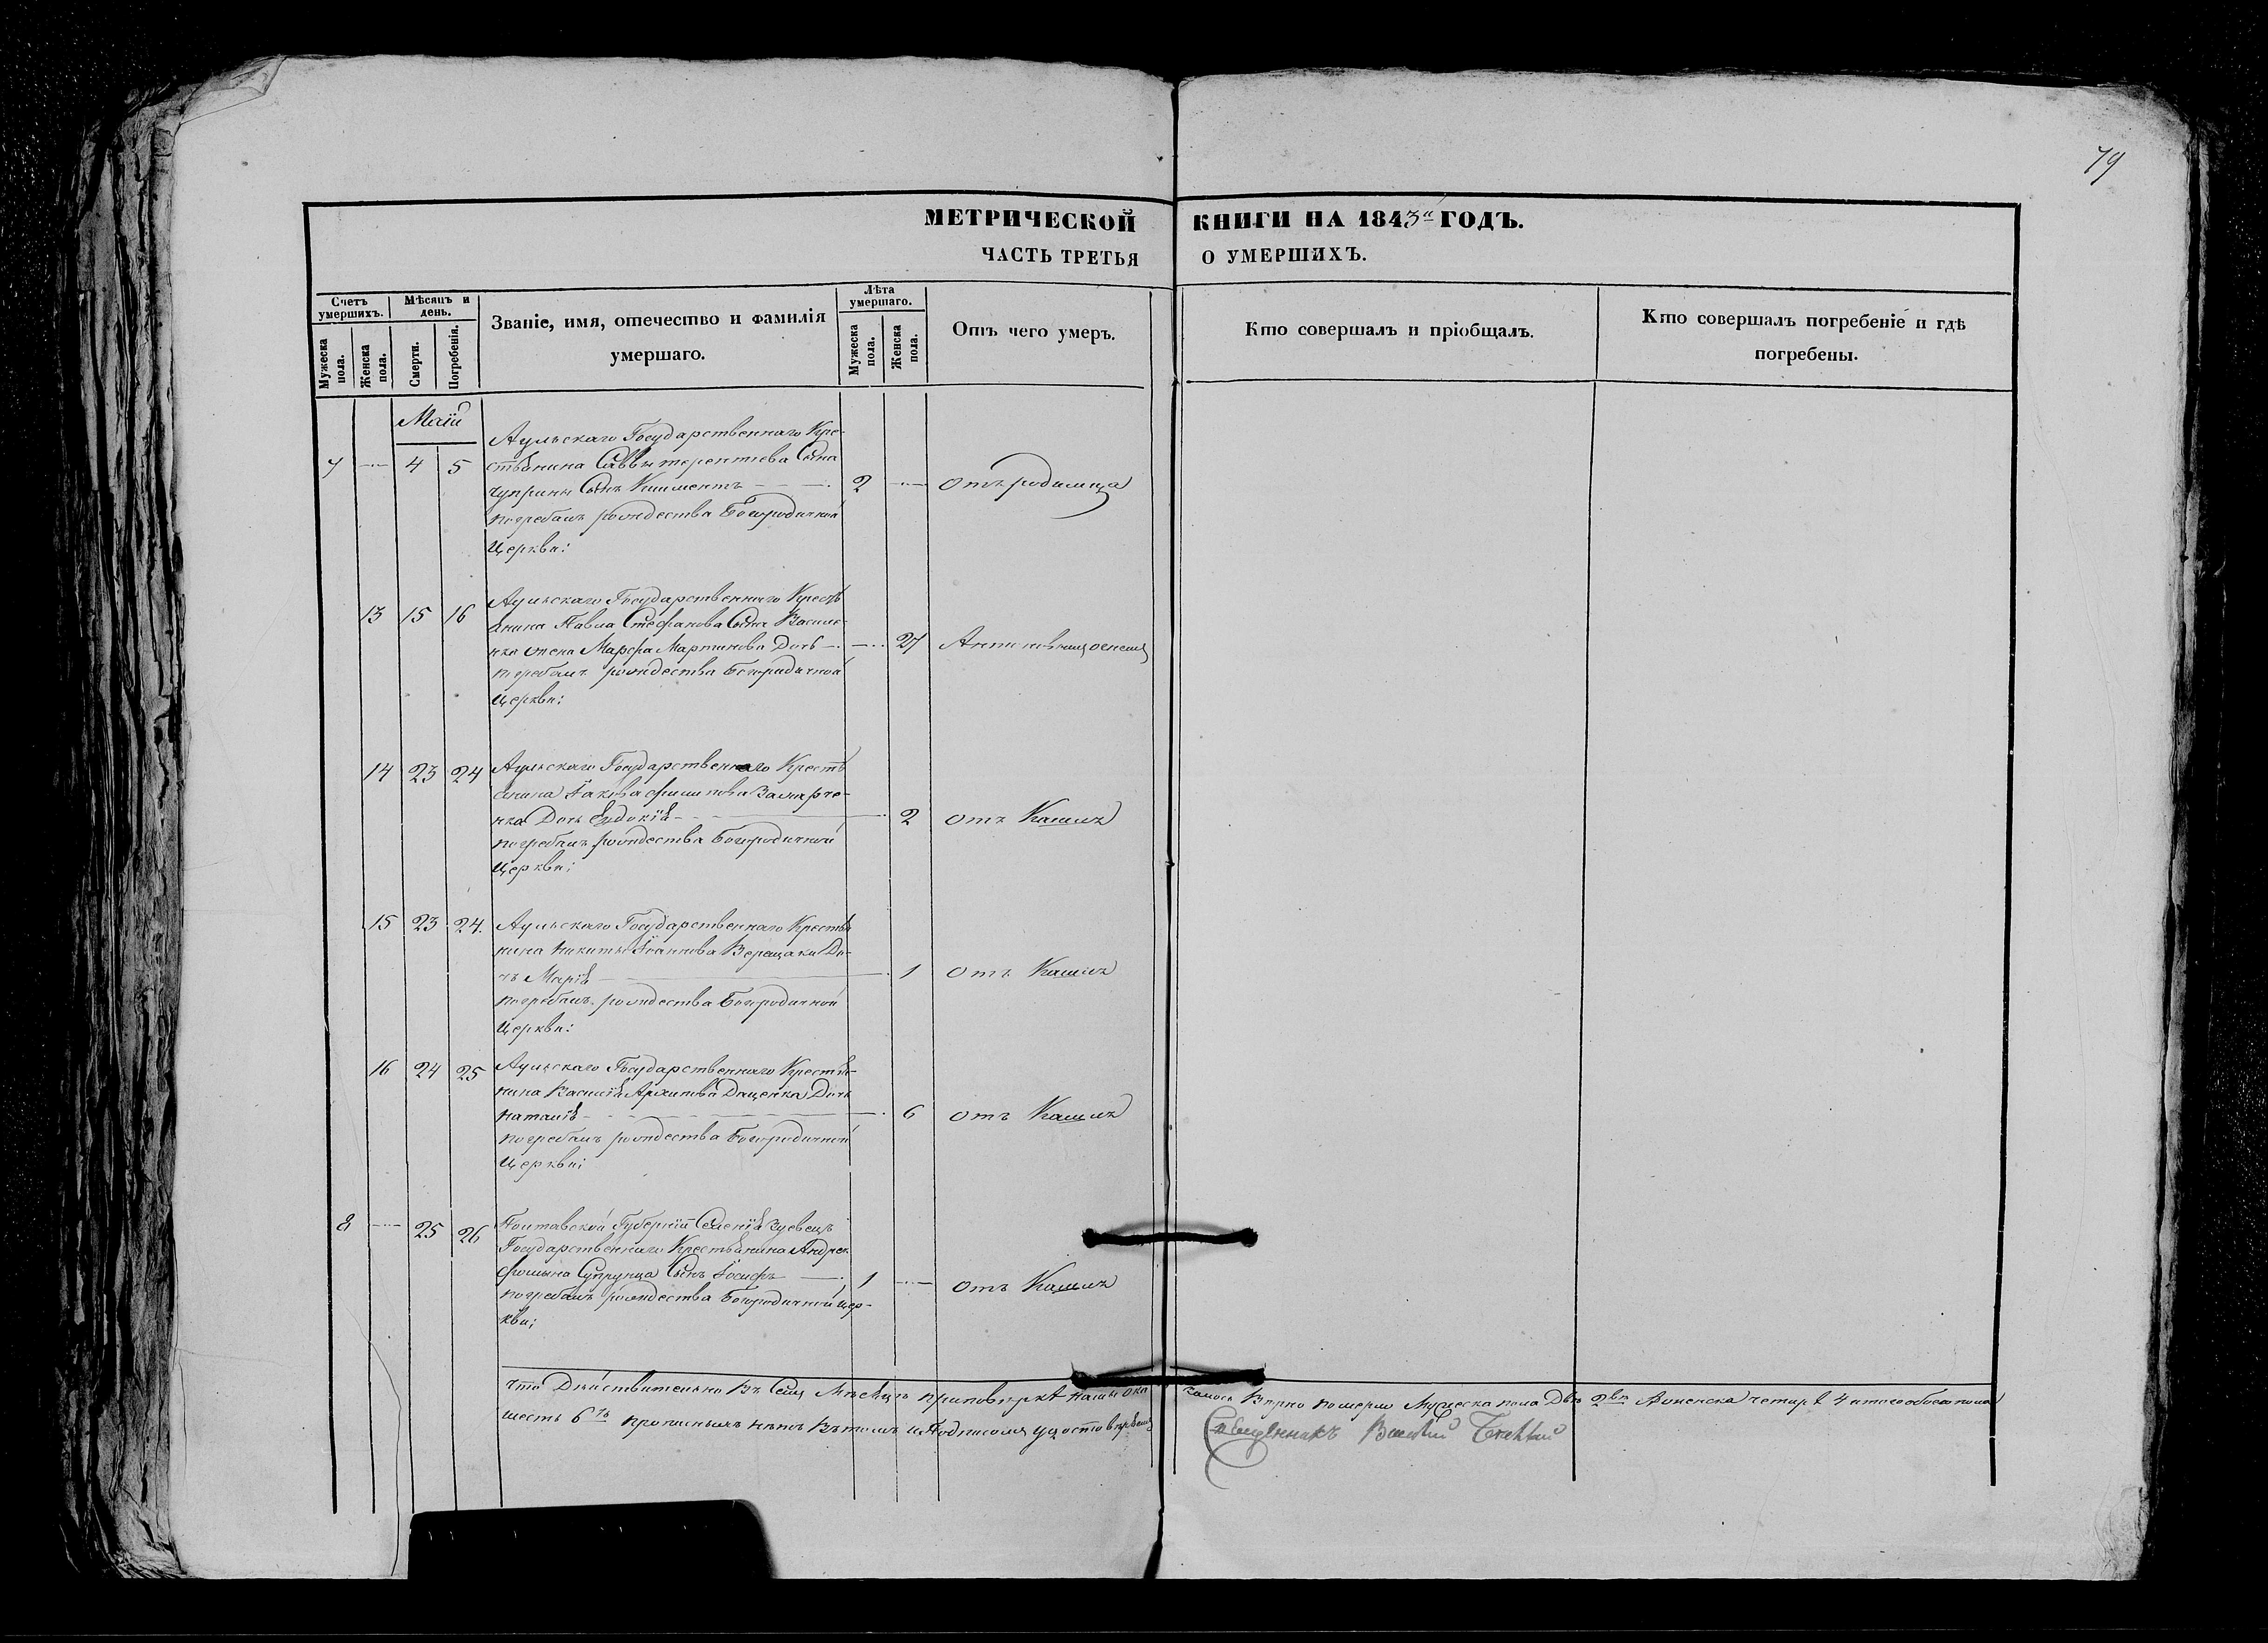 79
МЕТРИЧЕСКОЙ КНИГИ НА 1843й ГОДЪ.
ЧАСТЬ ТРЕТЬЯ О УМЕРШИХЪ.
Счетъ умершихъ.
Мужеска пола.
Женска пола.
Мѣсяцъ и день.
Смерти.
Погребенія.
Званіе, имя, отечество и фамилія умершаго.
Лѣта умершаго.
Мужеска пола.
Женска пола.
Отъ чего умеръ.
Кто совершалъ и пріобщалъ.
Кто совершалъ погребеніе и гдѣ погребены.
Маій
7 4 5
Аульскаго Государственнаго Кре-
стьянина Саввы терентіева Сына
чуприны Сынъ Климентъ 2 отъ родимца
погребанъ рождества Богородичной
Церкви:
13 15 16
Аульскаго Государственнаго Кресть
янина Павла Стефанова Сына Василе-
нка жена Марфа Мартинова Дочь 27
погребанъ рождества Богородичной
Церкви:
14 23 24
Аульскаго Государственнаго Кресть
янина Іакова филипова
нка Дочь Евдокія 2 отъ Кашля
погребанъ рождества Богородичной
Церкви:
15 23 24.
Аульскаго Государственнаго Крестья
нина никиты Іоаннова Верещаки До-
чь Марія 1 отъ Кашля
погребанъ рождества Богородичной
Церкви:
16 24 25
Аульскаго Государственнаго Крестья-
нина Василія Архипова Даценка Дочь
наталія 6 отъ Кашля
погребанъ рождества Богородичной
Церкви:
8 25 26
Полтавской Губерніи Селенія Зуевецъ
Государственнаго Крестьянина Андрея
фомина Супрунца Сынъ Іосифъ 1 отъ Кашля
погребанъ рождества Богородичной цер-
кви:
что Дѣйствительно Въ Семъ Мѣсяцѣ приповѣркѣ нашы ока залось Вѣрно померло Мужеска пола Два 2 Аженска четире 4 итого обоего пола
шесть 6ть прописныхъ нѣтъ Вътомъ иПодписомъ удостовѣряемъ
Священникъ Василій